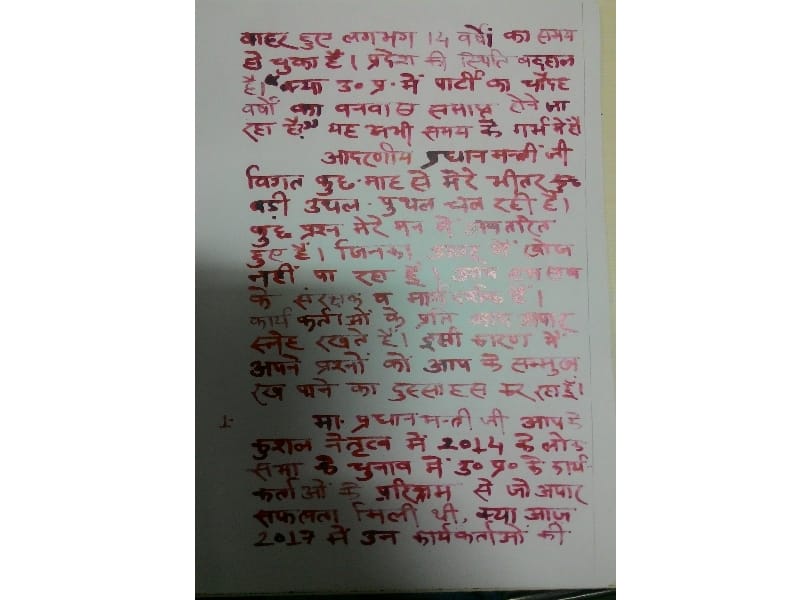 बाहर हुए लगभग 14 वर्षों का समय
हो चुका है। प्रदेश की स्थिति बदहाल
है। "क्या उ० प्र० में पार्टी का चौदह
वर्षों का वनवास समाप्त होने जा
रहा है?" यह अभी समय के गर्भ में है
आदरणीय प्रधानमन्त्री जी
विगत कुछ माह से मेरे भीतर
बड़ी उथल-पुथल चल रही है।
कुछ प्रश्न मेरे मन में अवतरित
हुए हैं। जिनका में खोज
नहीं पा रहा हूँ।
के संरक्षक व मार्ग हैं।
कार्यकर्ताओं के प्रति आप अपार
स्नेह रखते हैं। इसी कारण में
अपने प्रश्नों को आप के सम्मुख
रख पाने का दुस्साहस कर रहा हूँ।
1. मा. प्रधानमन्ती जी आपके
कुशल नेतृत्व में 2014 के लोक
सभा के चुनाव में उ० प्र० के कार्य-
कर्ताओं के परिश्रम से जो अपार
सफलता मिली थी, क्या आज
2017 में उन कार्यकर्ताओं की